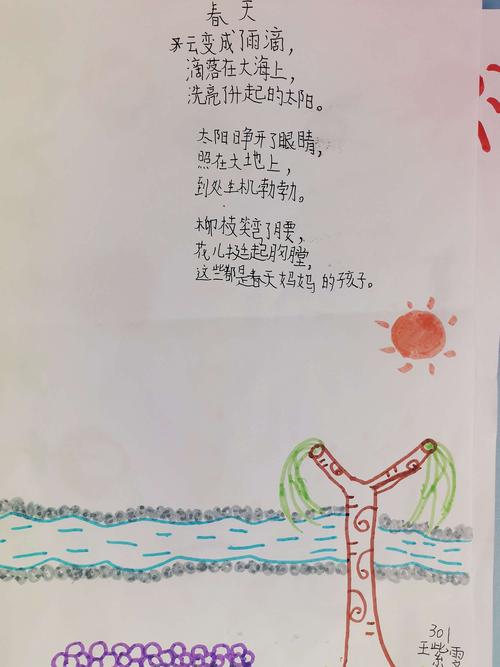 春天
云变成了雨滴，
滴落在大海上，
洗亮升起的太阳。
太阳睁开了眼睛，
照在大地上，
到处生机勃勃。
柳枝笑弯了腰，
花儿挺起胸膛，
这些都是春天妈妈的孩子。
301
王紫雪